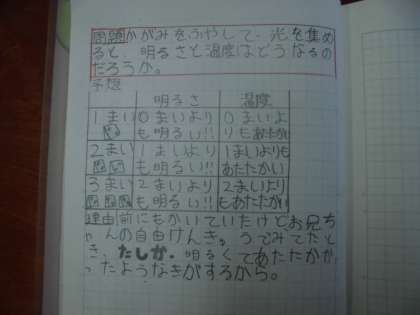 問題かがみをふやして、光を集め
ると、明るさと温度はどうなるの
だろうか。
予想
明るさ 温度
1まい 0まいより 0まいよ
も明るい!! りもあたたかい
2まい 1まいより 1まいよりも
も明るい!! あたたかい
3まい 2まいより 2まいより
も明るい!! もあたたかい
理由前にもかいていたけどお兄ち
ゃんの自由けんき。うでみてたと
き、たしか、明るくてあたたかか
ったようなきがするから。